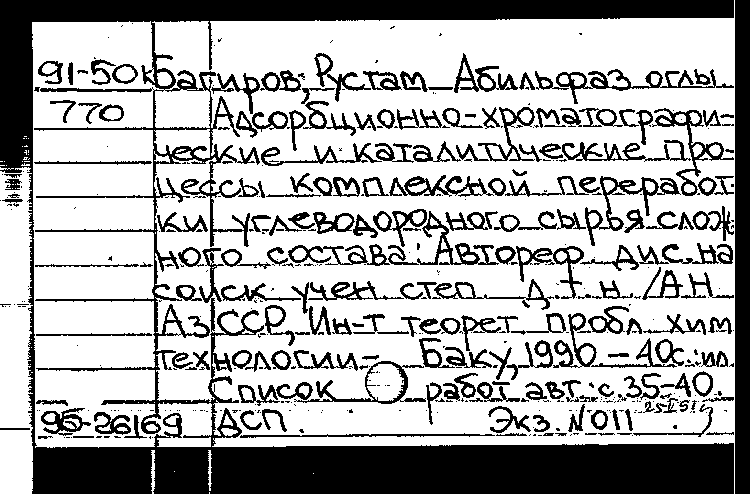 91-50к Багиров, Рустам Абильфаз оглы.
770 Адсорбционно-хроматографи-
ческие и каталитические про-
цессы комплексной переработ-
ки углеводородного сырья слож-
ного состава: Автореф. дис. на
соиск. учен. степ. д.т.н. /АН
АзССР, Ин-т теорет. пробл. хим.
технологии.- Баку, 1990. - 40с.: ил.
Список работ авт.: с.35-40.
95-26169 АСП. Экз. №011